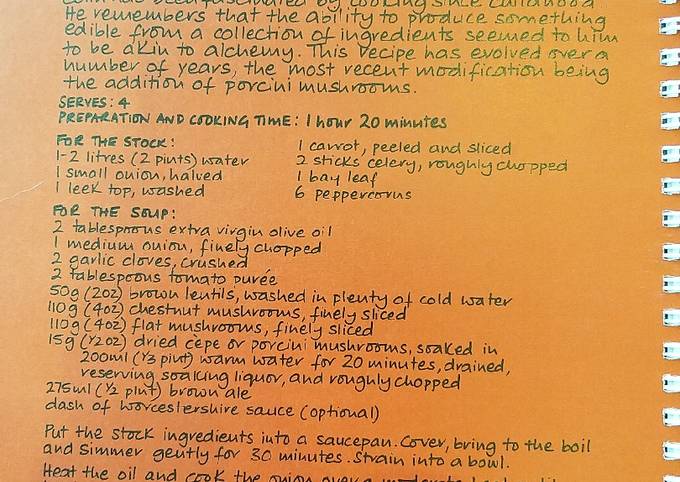 Colin has been fascinated by cooking since childhood
He remembers that the ability to produce something
edible from a collection of ingredients seemed to him
to be akin to alchemy. This recipe has evolved over a
number of years, the most recent modification being
the addition of porcini mushrooms.
SERVES: 4
PREPARATION AND COOKING TIME: 1 hour 20 minutes
FOR THE STOCK:
1-2 litres (2 pints) water
1 small onion, halved
1 leek top, washed
1 carrot, peeled and sliced
2 sticks celery, roughly chopped
1 bay leaf
6 peppercorns
FOR THE SOUP:
2 tablespoons extra virgin olive oil
1 medium onion, finely chopped
2 garlic cloves, crushed
2 tablespoons tomato purée
50g (2oz) brown lentils, washed in plenty of cold water
110g (4oz) chestnut mushrooms, finely sliced
110g (4oz) flat mushrooms, finely sliced
15g (1/2oz) dried cepe or porcini mushrooms, soaked in
200ml (1/3 pint) warm water for 20 minutes, drained,
reserving soaking liquor, and roughly chopped
275ml (1/2 pint) brown ale
dash of worcestershire sauce (optional)
Put the stock ingredients into a saucepan. Cover, bring to the boil
and simmer gently for 30 minutes. Strain into a bowl.
Heat the oil and cook the onion over a moderate